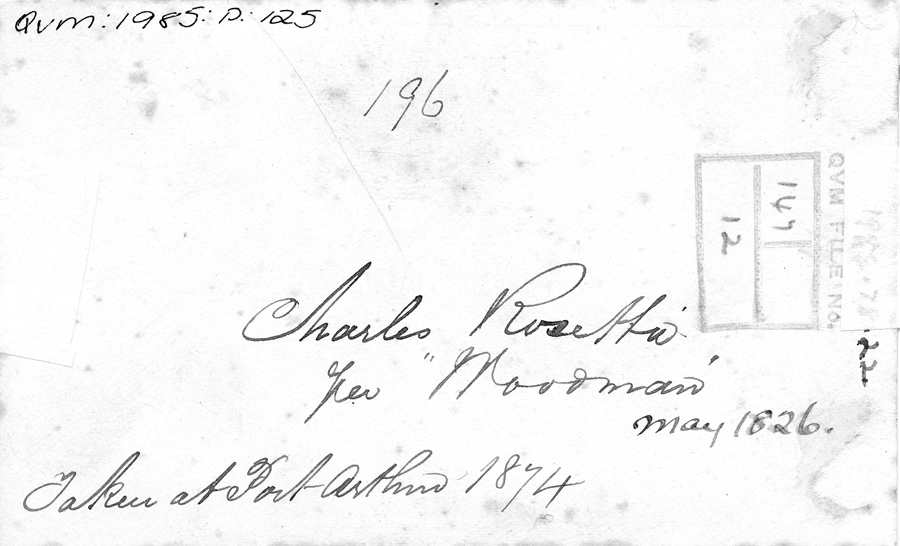 QVM: 1985: P: 125
196
QVM FILE NO.
147
12
22
Charles Rosetta
per "Woodman"
May 1826.
Taken at Port Arthur 1874